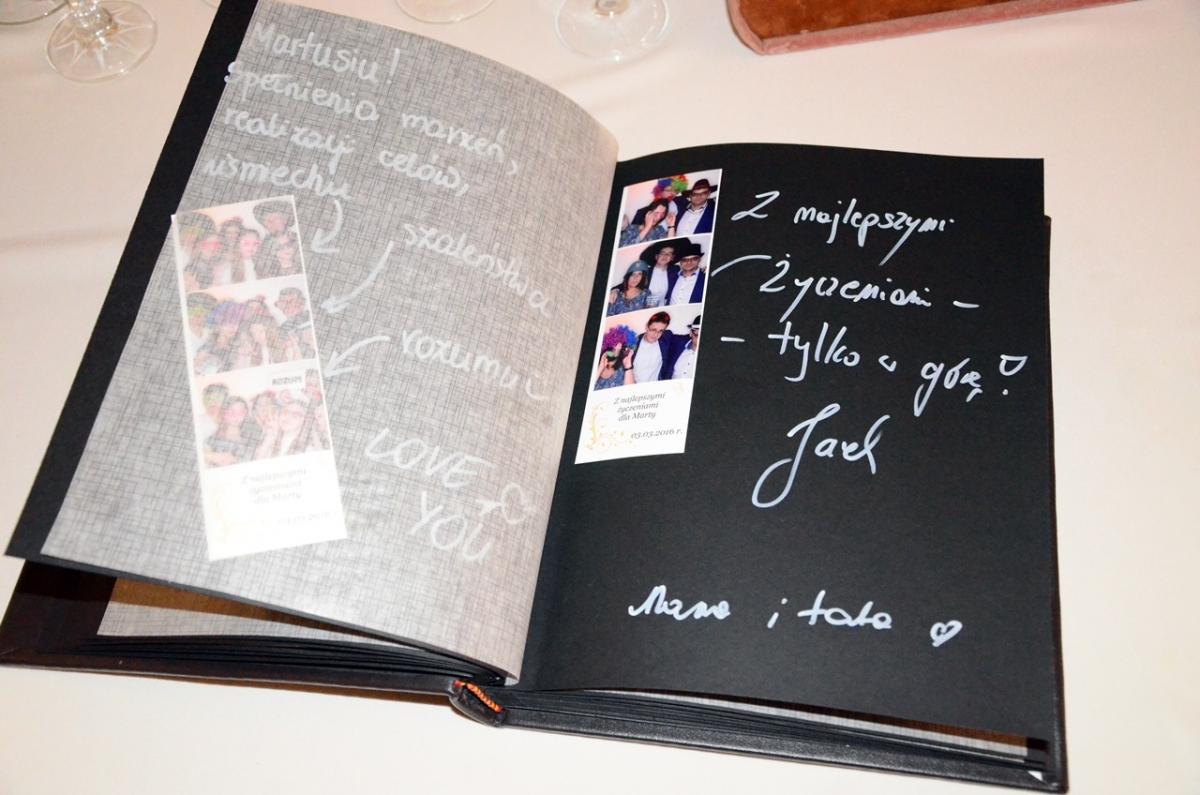 Martusiu!
Spełnienia marzeń,
realizacji celów,
uśmiechu
szaleństwa
rozumu
LOVE
YOU
ROZUM
Z najlepszymi
życzeniami
dla Marty
03.03.2016
Z najlepszymi
życzeniami -
- tylko w górę!
Jack
Mama i tata
Z najlepszymi
życzeniami
dla Marty
03.03.2016 r.